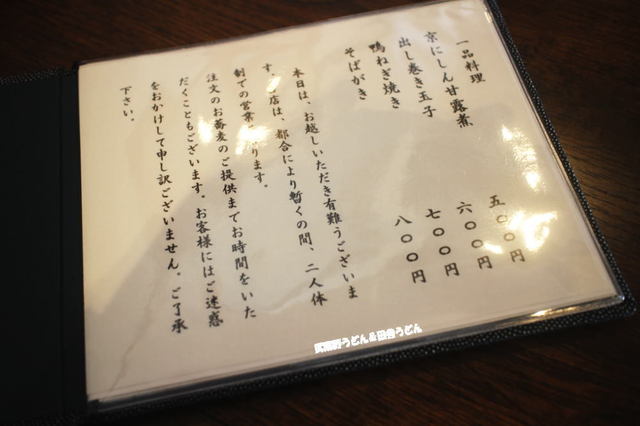 一品料理
京にしん甘露煮 五〇〇円
出し巻き玉子 六〇〇円
鴨ねぎ焼き 七〇〇円
そばがき 八〇〇円
本日は、お越しいただき有難うございま
す。店は、都合により暫くの間、二人体
制での営業ります。
注文のお蕎麦のご提供までお時間をいた
だくこともございます。お客様にはご迷惑
をおかけして申し訳ございません。ご了承
下さい。
武蔵野うどん&田舎うどん